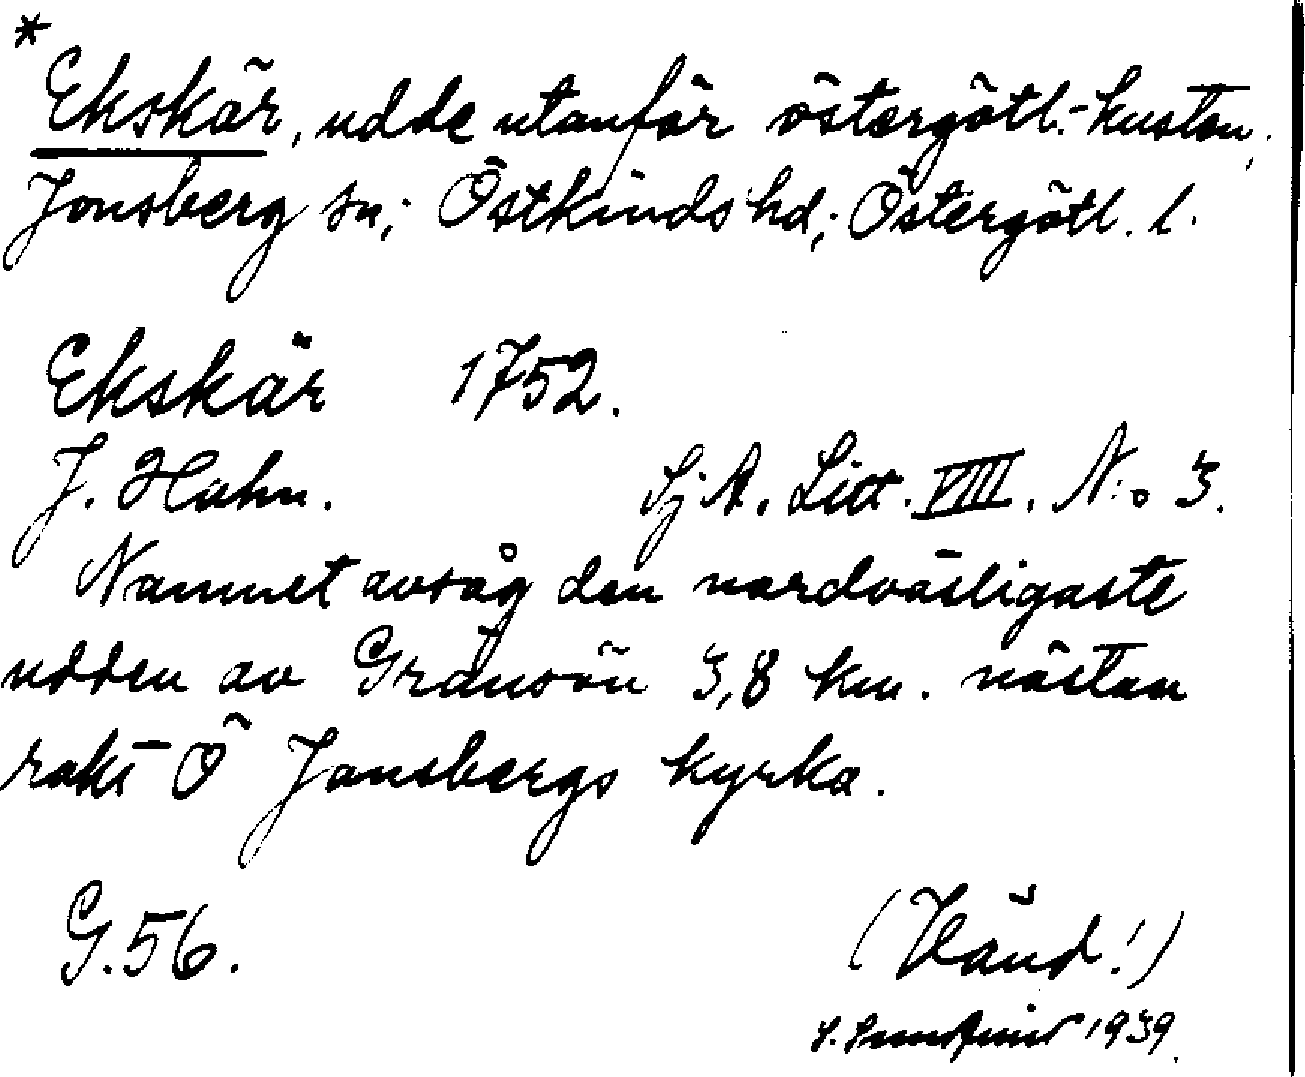 *
Ekskär, udde utanför östergötl.-kusten,
Jonsberg sn; Östkinds hd; Östergötl. l.
Ekskär 1752.
J. Hahn. Sj.A. Litt. VIII. N:o 3.
Namnet avsåg den nordväsligaste
udden av Gränsön 3,8 km. nästan
rakt Ö Jonsbergs kyrka.
G.56.
(Vänd!)
1939.